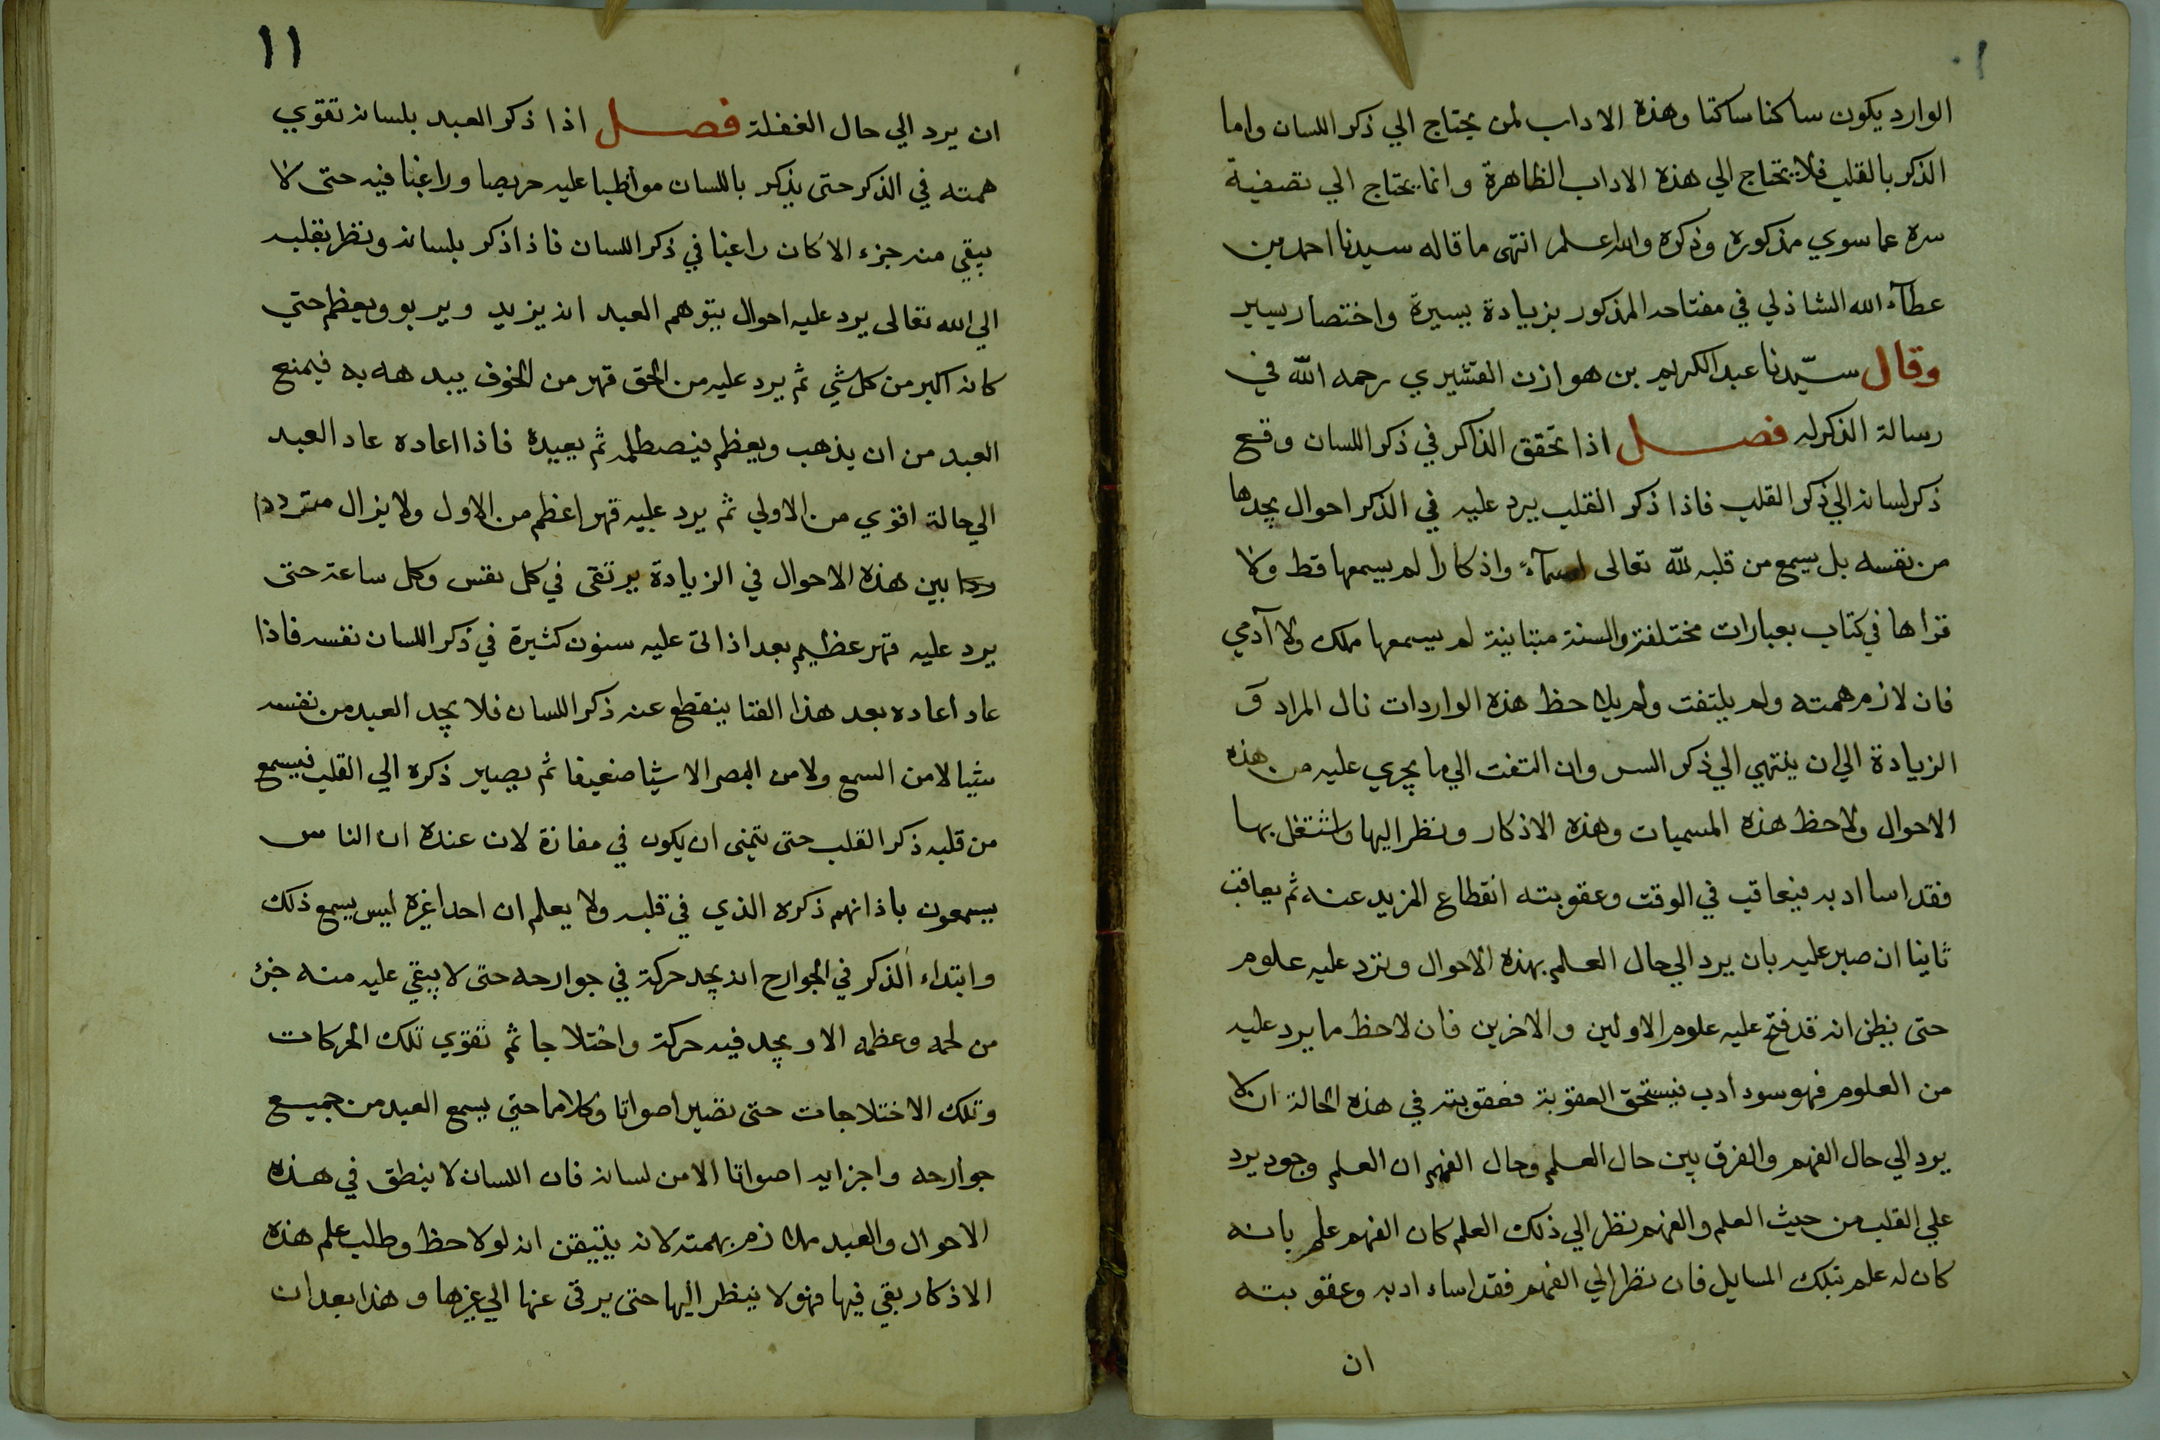 الوارد يكون ساكنا ساكتا وهذه الاداب لمن يحتاج الي ذكر اللسان واما
الذكر بالقلب فلا يحتاج الي هذه الاداب الظاهرة وانما يحتاج الي تصفية
سره عما سوي مذكوره وذكره والله اعلم انتهى ما قاله سيدنا احمد بن
عطآء الله الشاذلي في مفتاحه المذكور بزيادة يسيرة واختصار يسير
وقال سيّدنا عبد الكريم بن هوازن القشيري رحمه الله في
رسالة الذكر له فصل اذا تحقق الذاكر في ذكر اللسان وقع
ذكر لسانه الي ذكر القلب فاذا ذكر القلب يرد عليه في الذكر احوال يجدها
من نفسه بل يسمع من قلبه لله تعالى اسمآء واذكارا لم يسمعها قط ولا
قراها في كتاب بعبارات مختلفة والسنة متباينة لم يسمعها ملك ولا آدمي
فان لازم همته ولم يلتفت ولم يلاحظ هذه الواردات نال المراد و
الزيادة الي ان ينتهي الي ذكر السر وان التفت الي ما يجري عليه من هذه
الاحوال ولاحظ هذه المسميات وهذه الاذكار ونظر اليها واشتغل بها
فقد اسا ادبه فيعاقب في الوقت وعقوبته انقطاع المزيد عنه ثم يعاقب
ثانيا ان صبر عليه بان يرد الي حال العلم بهذه الاحوال وترد عليه علوم
حتى يظن انه قد فتح عليه علوم الاولين والاخرين فان لاحظ ما يرد عليه
من العلوم فهو سود أدب فيستحق العقوبة فعقوبته في هذه الحالة ان لا
يرد الي حال الفهم والفرق بين حال العلم وحال الفهم ان العلم وجود يرد
علي القلب من حيث العلم والفهم نظر الي ذلك العلم كان الفهم علم بانه
كان له علم بتلك المسايل فان نظر الي الفهم فقد اساء ادبه وعقوبته
ان
١١
ان يرد الي حال الغفلة فصل اذا ذكر العبد بلسانه تقوي
همته في الذكر حتى يذكر باللسان مواظبا عليه حريصا وراغبا فيه حتى لا
يبقي منه جزء الا كان راغبا في ذكر اللسان فاذا ذكر بلسانه ونظر بقلبه
الي الله تعالى يرد عليه احوال يتوهم العبد انه يزيد ويربو ويعظم حتي
كانه اكبر من كل شي ثم يرد عليه من الحق قهر من الخوف يبدهه به فيمنع
العبد من ان يذهب ويعظم فيصطلمه ثم يعيده فاذا اعاده عاد العبد
الي حالة اقوي من الاولي ثم يرد عليه قهر اعظم من الاول ولا يزال مترددا
بين هذه الاحوال في الزيادة يرتقى في كل نفس وكل ساعة حتى
يرد عليه قهر عظيم بعد اذ اتى عليه سنون كثيرة في ذكر اللسان نفسه فاذا
عاد أعاده بعد هذا الفنا ينقطع عنه ذكر اللسان فلا يجد العبد من نفسه
شيا لا من السمع ولا من البصر الا شيا ضعيفا ثم يصير ذكره الي القلب فيسمع
من قلبه ذكر القلب حتى يتمنى ان يكون في مفازة لان عنده ان الناس
يسمعون باذانهم ذكره الذي في قلبه ولا يعلم ان احدا غيره ليس يسمع ذلك
وابتداء الذكر في الجوارح انه يجد حركة في جوارحه حتى لا يبقي عليه منه جزء
من لحمه وعظمه الا ويجد فيه حركة واختلاجا ثم تقوي تلك الحركات
وتلك الاختلاجات حتى تصير اصواتا وكلاما حتي يسمع العبد من جميع
جوارحه واجزايه اصواتا الا من لسانه فان اللسان لا ينطق في هذه
الاحوال والعبد ملازم بهمته لانه يتيقن انه لو لاحظ وطلب علم هذه
الاذكار بقي فيها فهو لا ينظر اليها حتى يرقى عنها الي غيرها وهذا بعد ان